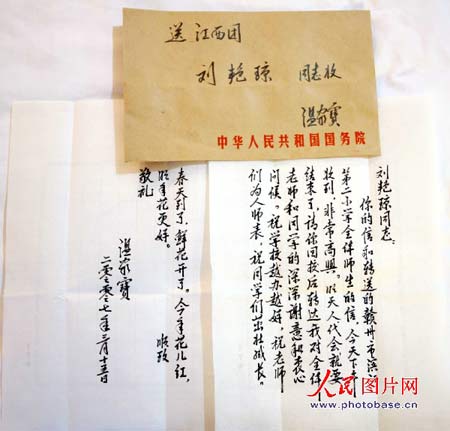 送江西团
刘艳琼 同志收
温家宝
中华人民共和国国务院
刘艳琼同志:
你的信和转送的赣州市滨江
第二小学全体师生的信,今天下午
收到,非常高興。明天人代会就要
结束了,请你回校后转达我对全体
老师和同学的深深谢意和衷心
问候。祝学校越办越好,祝老师
们为人师表,祝同学们茁壮成长。
春天到了,鲜花开了。今年花儿红,
明年花更好。 顺致
敬礼
温家宝
二零零七年三月十五日
人民图片网
www.photobase.cn